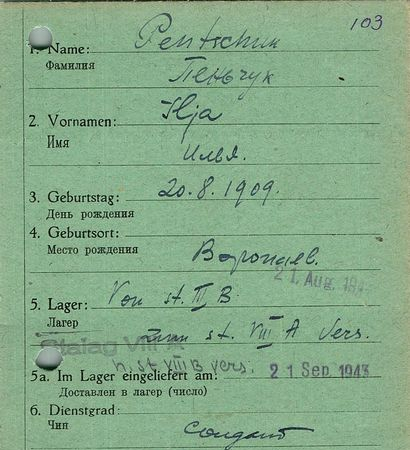 103
1. Name: Pentschuk
Фамилия
Пеньчук
2. Vornamen: Ilja
Имя
Илья.
3. Geburtstag: 20.8.1909.
День рождения
4. Geburtsort:
Место рождения
21. Aug. 194
5. Lager: Von st. II B
Лагер
zum st. VIII A Vers.
Stalag VIII
n. st VIII B vers.
5a. Im Lager eingeliefert am: 21 Sep. 1943
Доставлен в лагер (число)
6. Dienstgrad:
Чин
Солдат